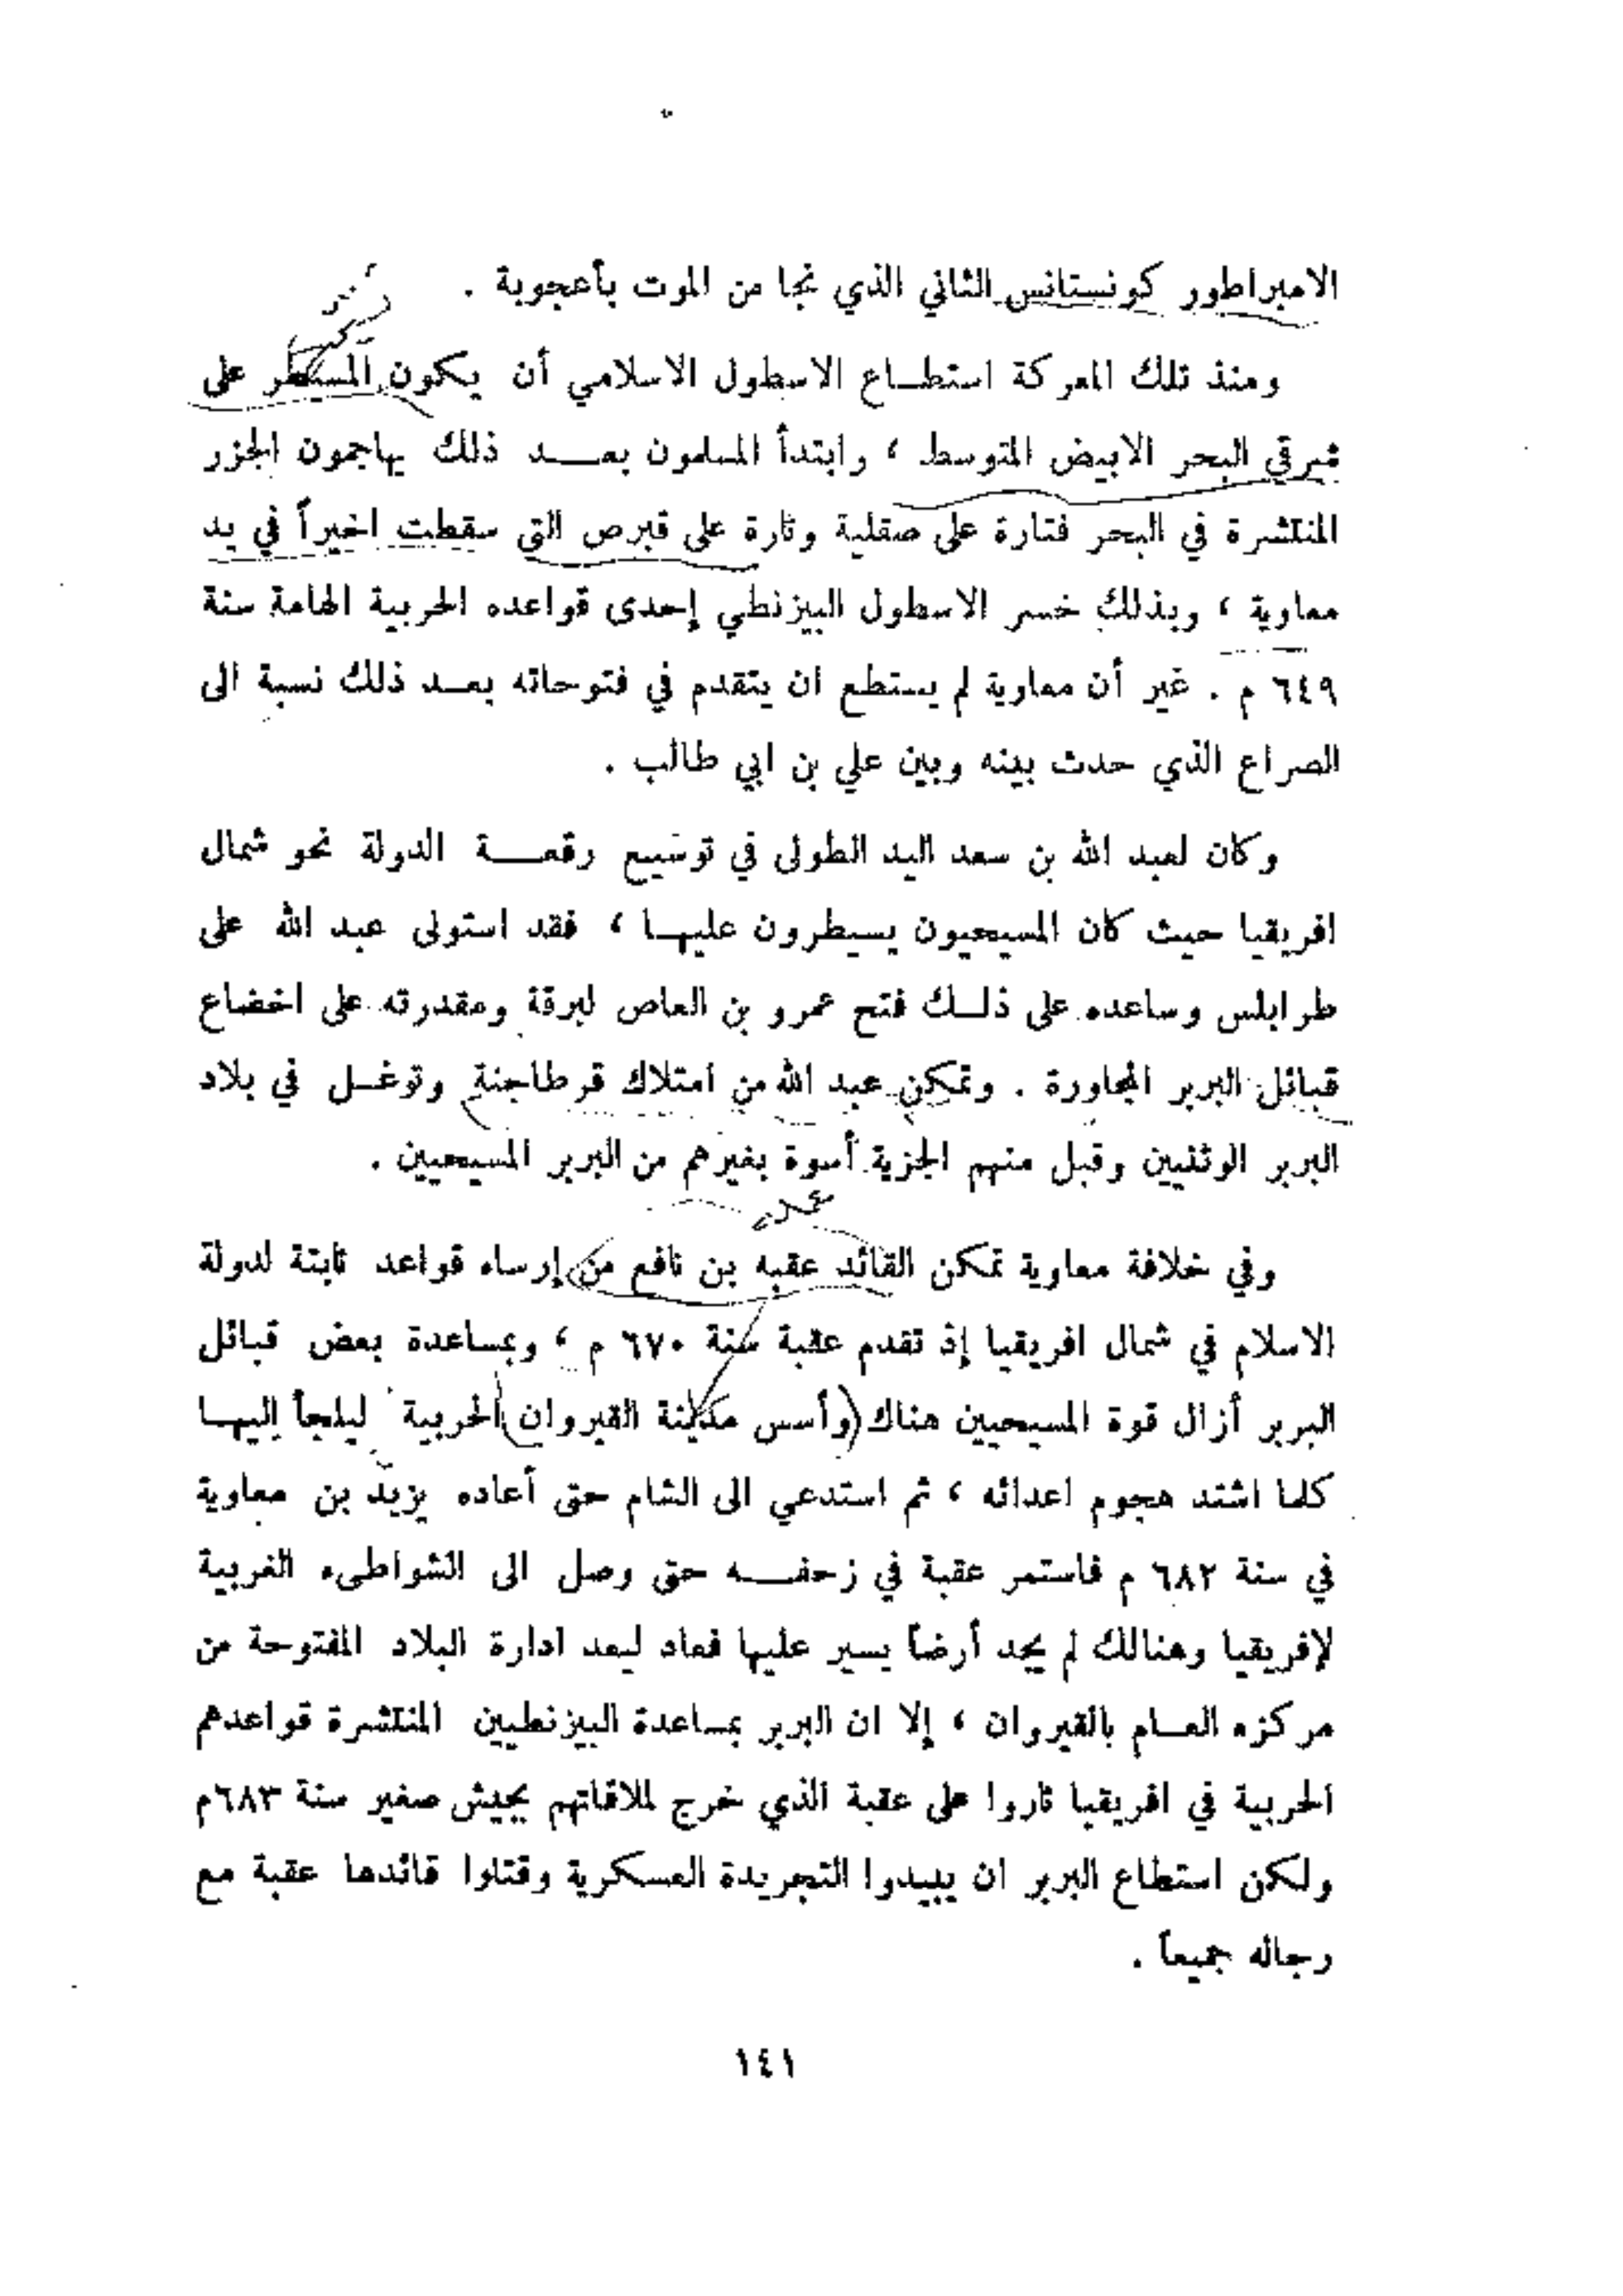 الامبراطور كونستانس الثاني الذي نجا من الموت بأعجوبة .
ومنذ تلك المعركة استطاع الاسطول الاسلامي أن يكون المسيطر على
شرقي البحر الابيض المتوسط ، وابتدأ المسلمون بعد ذلك يهاجمون الجزر
المنتشرة في البحر فتارة على صقلية وتارة على قبرص التي سقطت اخيراً في يد
معاوية ، وبذلك خسر الاسطول البيزنطي إحدى قواعده الحربية الهامة سنة
٦٤٩ م . غير أن معاوية لم يستطع ان يتقدم في فتوحاته بعد ذلك نسبة الى
الصراع الذي حدث بينه وبين علي بن ابي طالب .
وكان لعبد الله بن سعد اليد الطولى في توسيع رقعة الدولة نحو شمال
افريقيا حيث كان المسيحيون يسيطرون عليها ، فقد استولى عبد الله على
طرابلس وساعده على ذلك فتح عمرو بن العاص لبرقة ومقدرته على اخضاع
قبائل البربر المجاورة . وتمكن عبد الله من امتلاك قرطاجنة وتوغل في بلاد
البربر الوثنيين وقبل منهم الجزية أسوة بغيرهم من البربر المسيحيين .
وفي خلافة معاوية تمكن القائد عقبه بن نافع من إرساء قواعد ثابتة لدولة
الاسلام في شمال افريقيا إذ تقدم عقبة سنة ٦٧٠ م ، وبمساعدة بعض قبائل
البربر أزال قوة المسيحيين هناك (وأسس مدينة القيروان) الحربية ليلجأ إليها
كلما اشتد هجوم اعدائه ، ثم استدعي الى الشام حتى أعاده يزيد بن معاوية
في سنة ٦٨٢ م فاستمر عقبة في زحفه حتى وصل الى الشواطىء الغربية
لإفريقيا وهنالك لم يجد أرضاً يسير عليها فعاد ليعد ادارة البلاد المفتوحة من
مركزه العام بالقيروان ، إلا ان البربر بمساعدة البيزنطيين المنتشرة قواعدهم
الحربية في افريقيا ثاروا على عقبة الذي خرج لملاقاتهم بجيش صغير سنة ٦٨٣م
ولكن استطاع البربر ان يبيدوا التجريدة العسكرية وقتلوا قائدها عقبة مع
رجاله جميعاً .
١٤١